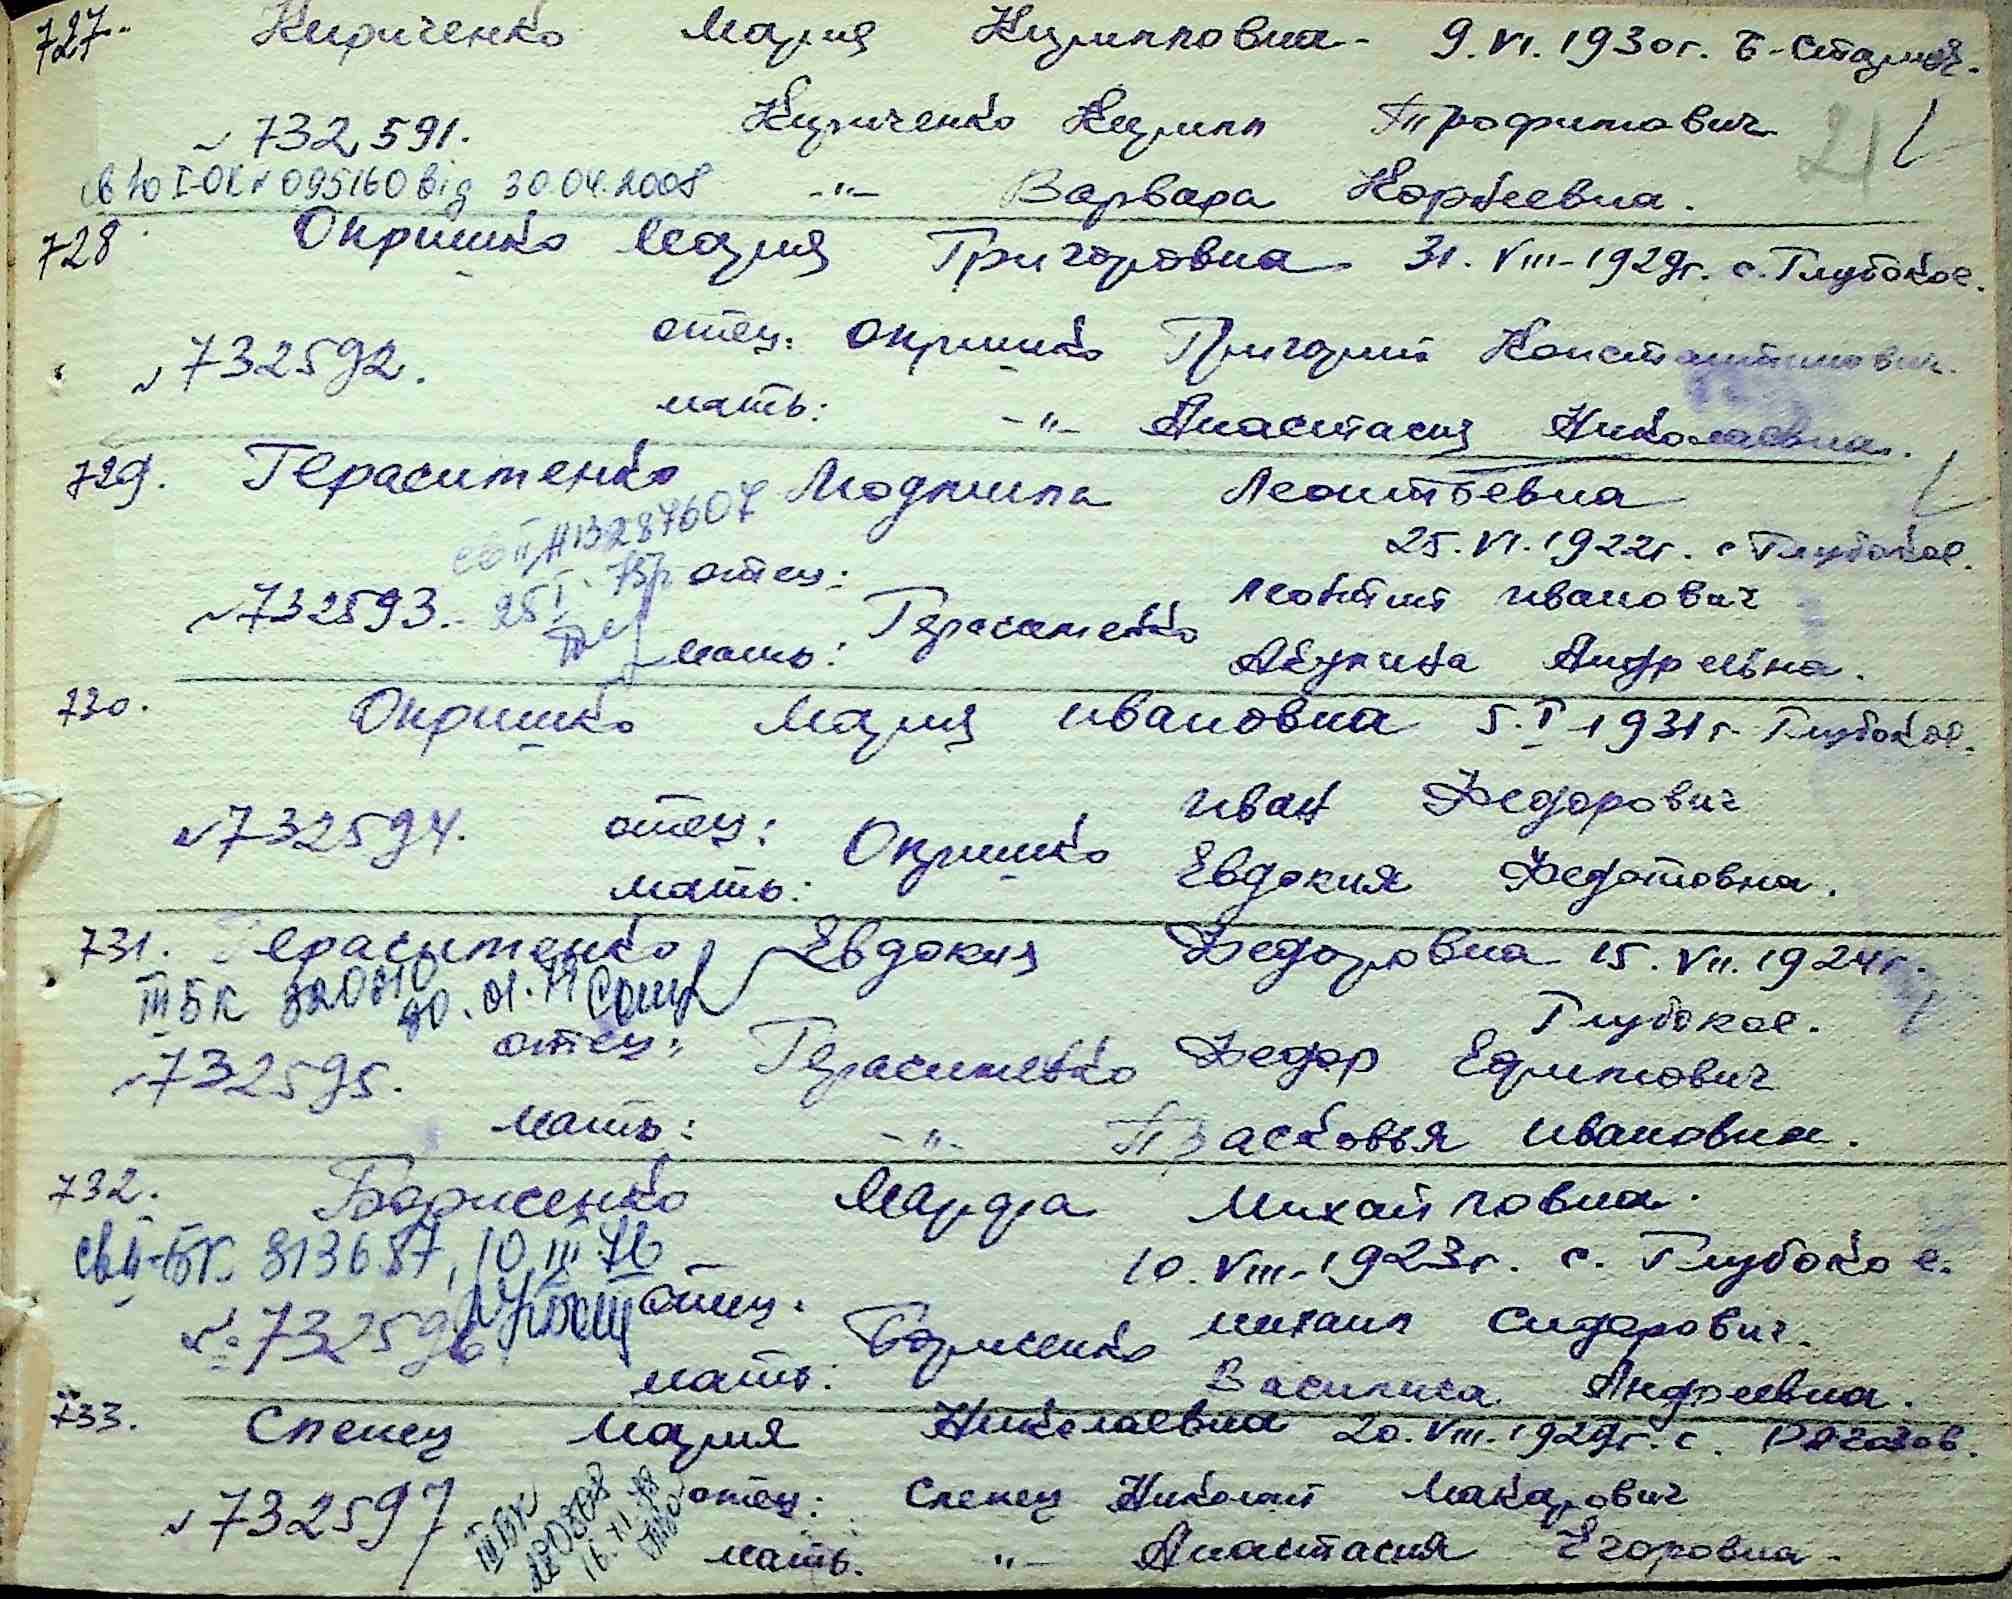 727. Кириченко Мария Кирилловна - 9.VI.1930г. Б-Стариц.
21
№ 732,591. Кириченко Кирилл Трофимович
св Ю I-ОК № 095160 від 30.04.2008 -"- Варвара Корнеевна.
728 Опришко Мария Григоровна 31.VIII-1929г. с. Глубокое.
отец: Опришко Григорий Константинович.
№ 732592.
мать: -"- Анастасия Николаевна.
729. Герасименко Людмила Леонтьевна
25.VI.1922г. с Глубокое.
отец: Леонтий Иванович
№ 732593. 25 I Герасименко
мать: Акулина Андреевна.
730. Опришко Мария Ивановна 5.I 1931г. Глубокое.
отец: Иван Федорович
№ 732594. Опришко
мать: Евдокия Федотовна.
731. Герасименко Евдокия Федоровна 15.VII.1924г.
III БК 520810 Глубокое.
отец: Герасименко Федор Ефимович
№ 732595.
мать: -"- Прасковья Ивановна.
732. Борисенко Марфа Михайловна.
св II-БК 813687, 10.III.76 10.VIII-1923г. с. Глубокое.
отец: Михаил Сидорович.
№ 732596 Борисенко
мать: Василиса Андреевна.
733. Слепец Мария Николаевна 20.VIII.1929г. с. Рогозов.
отец: Слепец Николай Макарович
№ 732597 III БК
мать. "- Анастасия Егоровна.